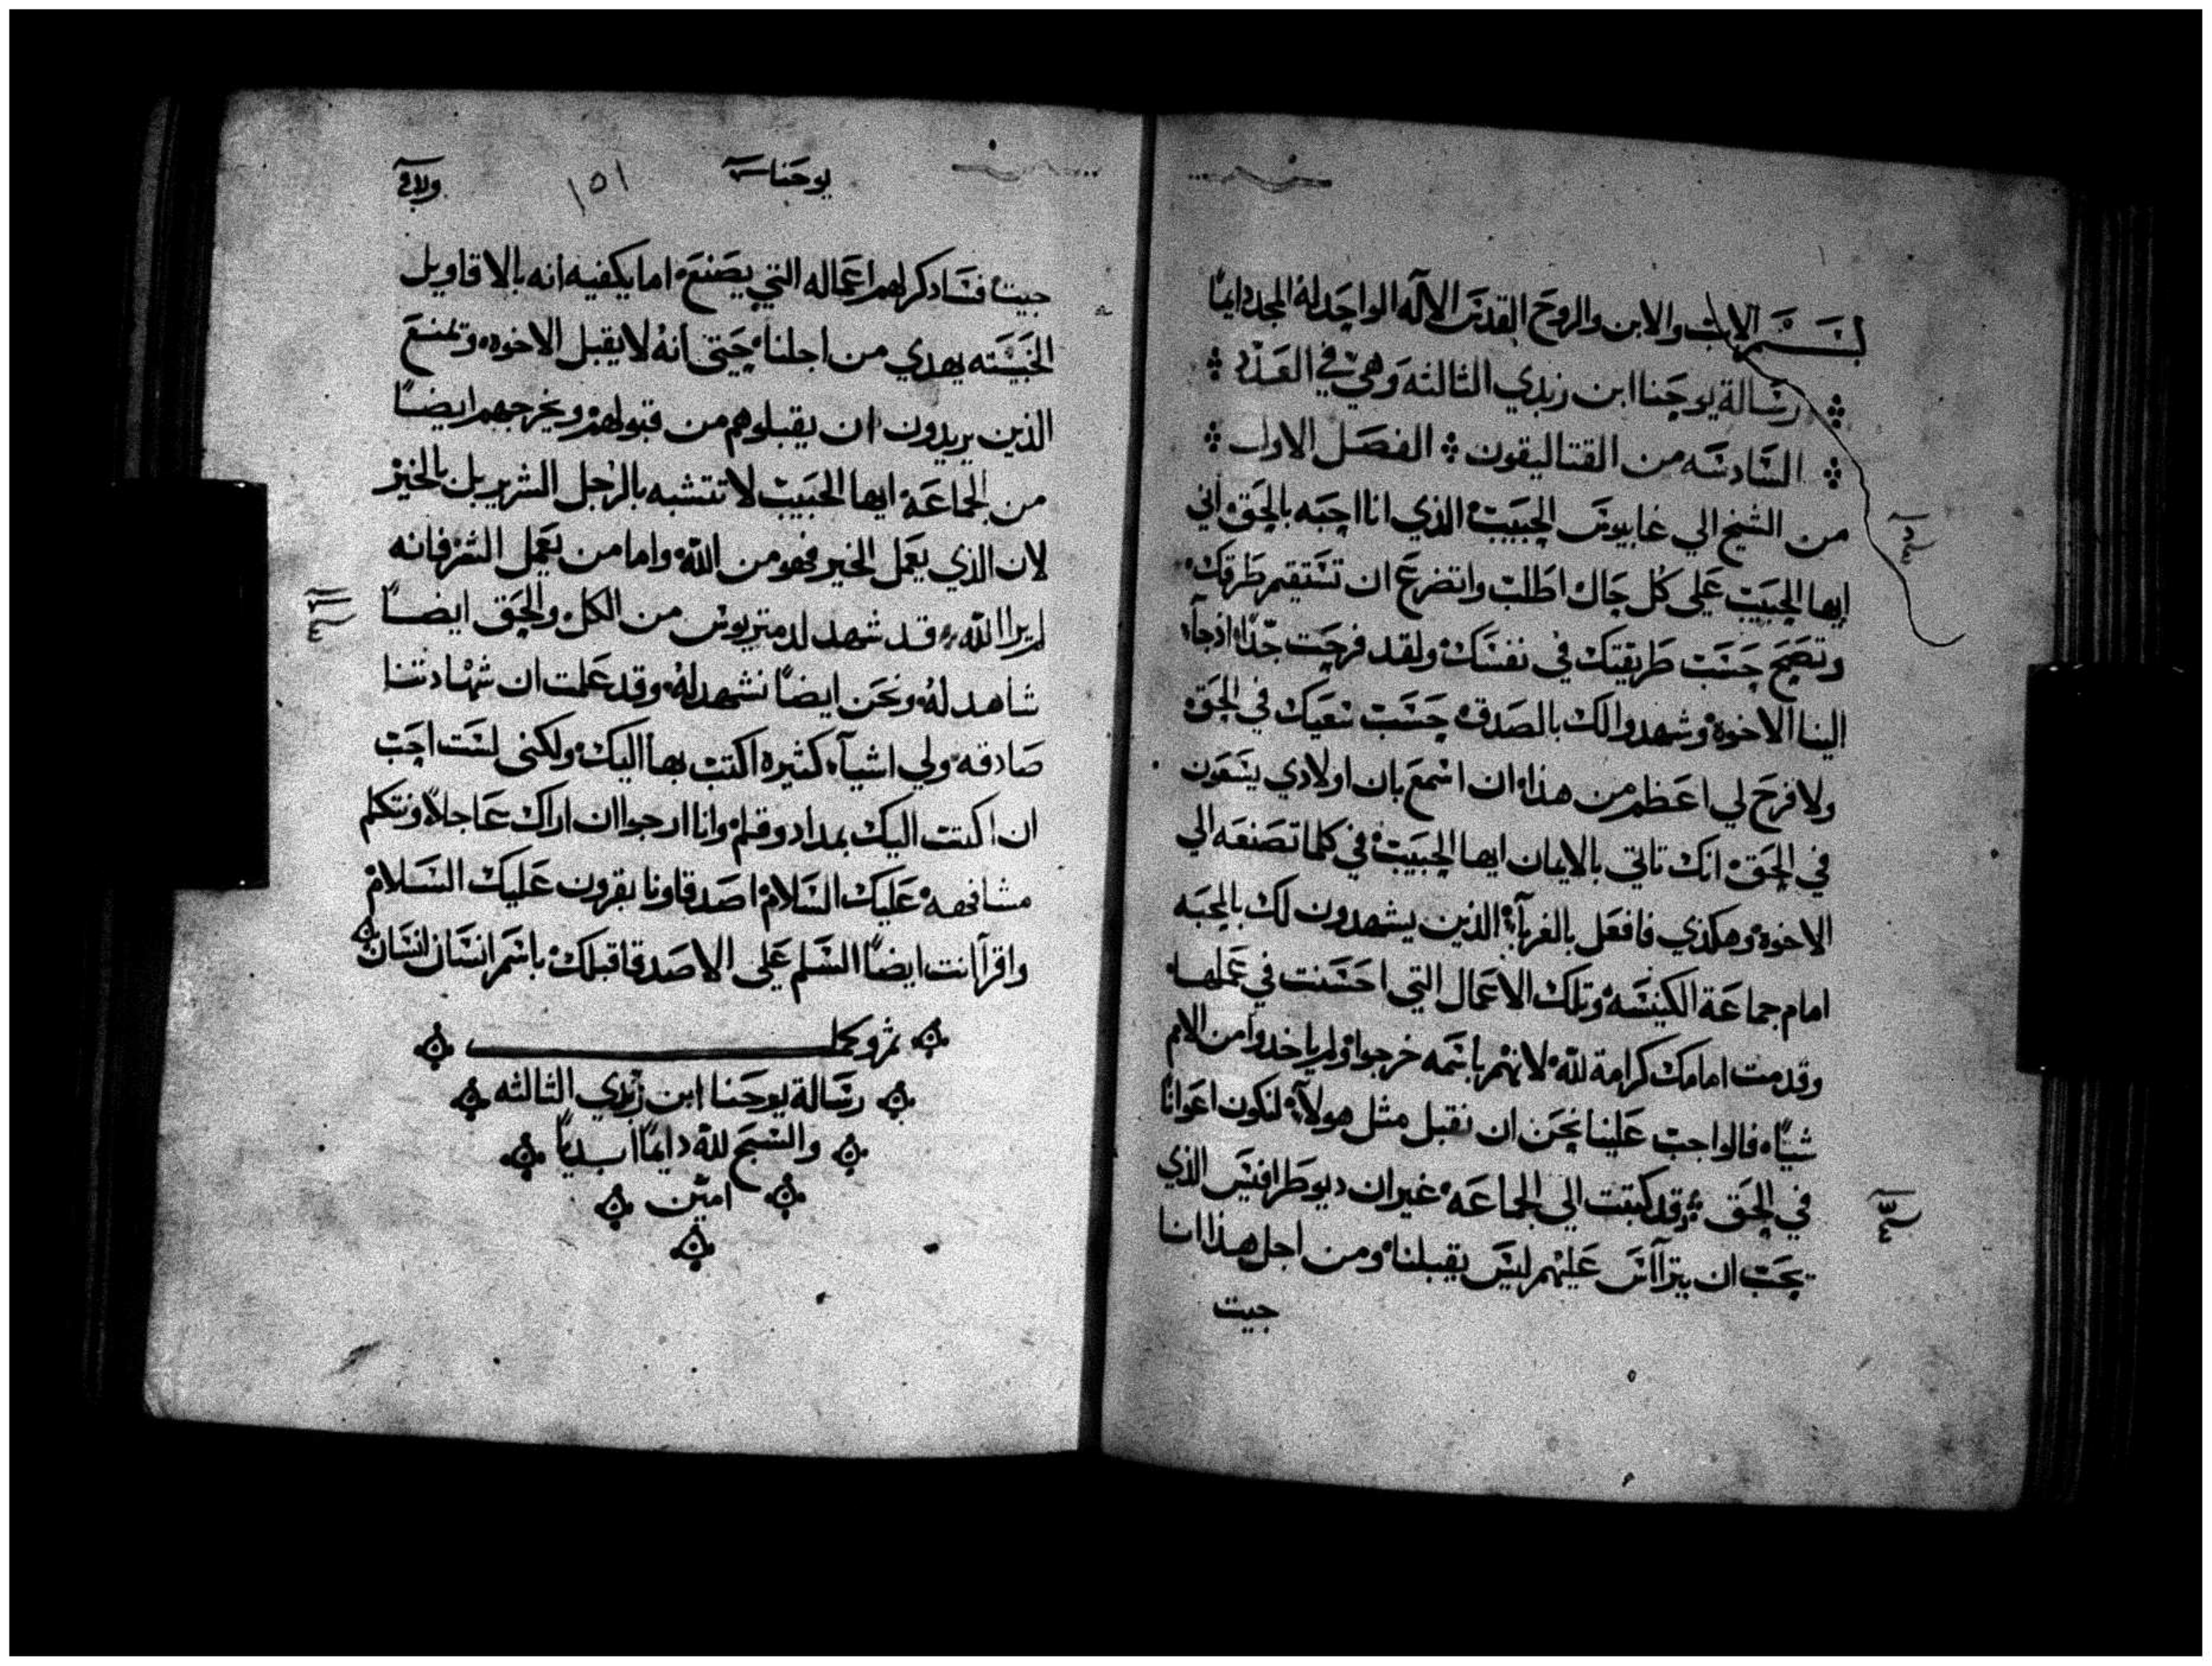 بسم الاب والابن والروح القدس الاله الواحد له المجد دايمًا
رسالة يوحنا ابن زبدي الثالثه وهي في العدد
السادسه من القتاليقون الفصل الاول
من الشيخ الي غاييوس الحبيب الذي انا احبه بالحق اني
ايها الحبيب علي كل حال اطلب واتضرع ان تستقيم طرقك
وتصح حسب طريقتك في نفسك ولقد فرحت جدًا اذ جآء
الينا الاخوه وشهدوا لك بالصدق حسب سعيك في الحق
ولا فرح لي اعظم من هذا ان اسمع بان اولادي يسعون
في الحق انك تاتي بالايمان ايها الحبيب في كلما تصنعه الي
الاخوه وهكذي فافعل بالغربآء الذين يشهدون لك بالمحبه
امام جماعة الكنيسه وتلك الاعمال التي احسنت في عملها
وقدمت امامك كرامة لله لانهم باسمه خرجوا ولم ياخدوا من الامم
شيًا فالواجب علينا نحن ان نقبل مثل هولآء لنكون اعوانًا
في الحق وقد كتبت الي الجماعه غير ان ديوطرافيس الذي
يحب ان يتراآس عليهم ليس يقبلنا ومن اجل هذا انا
جيت
يوحنا ١٥١
جيت فسادكر لهم اعماله التي يصنع اما يكفيه انه بالاقاويل
الخبيثه يهدي من اجلنا حتي انه لا يقبل الاخوه وتمنع
الذين يريدون ان يقبلوهم من قبولهم ويخرجهم ايضًا
من الجماعه ايها الحبيب لا تتشبه بالرجل الشرير بل بالخير
لان الذي يعمل الخير فهو من الله واما من يعمل الشر فانه
لم يرا الله قد شهد لدمتريوس من الكل والحق ايضًا
شاهد له ونحن ايضًا نشهد له وقد علمت ان شهادتنا
صادقه ولي اشيآء كثيره اكتب بها اليك ولكنى لست احب
ان اكتب اليك بمداد وقلم وانا ارجوا ان اراك عاجلًا ونتكلم
مشافهه عليك السلام اصدقاونا يقرون عليك السلام
واقرآ انت ايضًا السلم علي الاصدقا قبلك باسم انسان انسان
تم وكمل
رسالة يوحنا ابن زبدي الثالثه
والسبح لله دايمًا ابديًا
امين